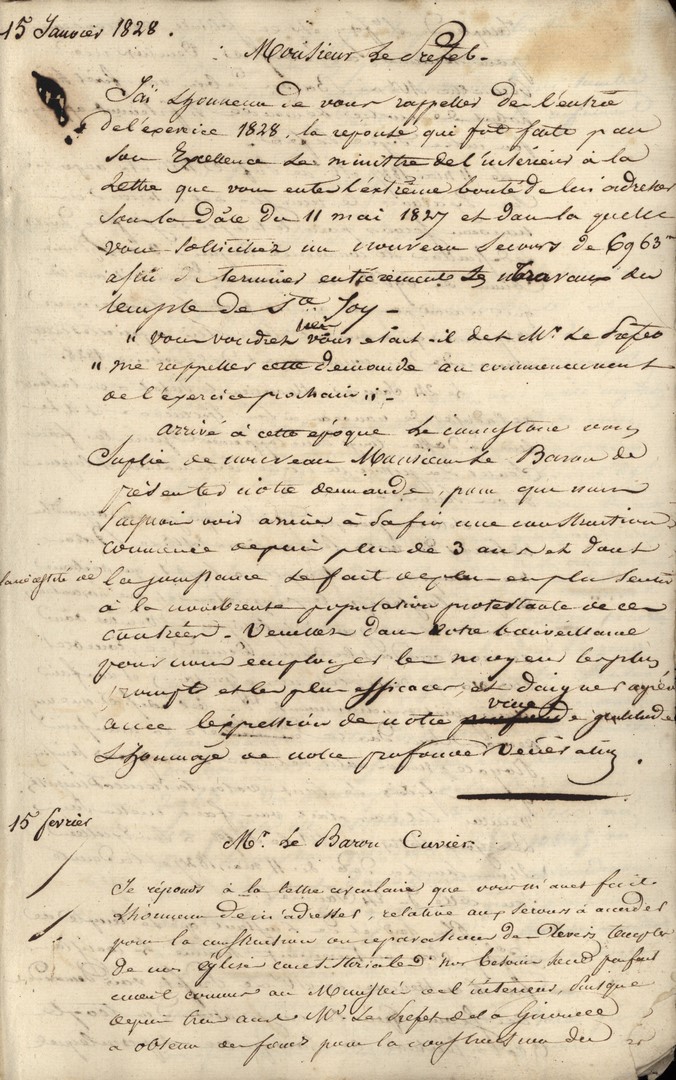 15 Janvier 1828.
Monsieur Le Préfet.
J'ai Lhonneur de vous rappeller de l'entrée
de l'exercice 1828, la reponse qui fût faite par
Son Excellence Le ministre de l'intérieur à la
Lettre que vous eutes l'extrême bonté de lui adresser
Sous la dâte du 11 mai 1827 et dans la quelle
vous Sollicitiez un nouveau Secours de 6963
afin de terminer entièrement les travaux du
temple de Ste Foy -
" vous voudrez bien vous etait-il dit Mr. Le Prefet
" me rappeller cette demande au commencement
de l'exercice prochain ,, -
arrivé à cette époque Le consistoire vous
Suplie de nouveau Monsieur Le Baron de
présenter notre demande, pour que nous
puissions voir arriver à Sa fin une construction
commencée depuis plus de 3 ans et dont
la nécessité de
la jouissance Se fait de plus en plus Sentir
à la nombreuse population protestante de ces
contrées. Veuillez dans votre bienveillance
pour nous employer les moyens les plus
prompts et les plus efficaces, et daignez agréer
avec l'expression de notre vive gratitude
Lhommage de notre profonde Vénération.
15 fevrier
Mr. Le Baron Cuvier
Je réponds à la lettre circulaire que vous m'avez fait
Lhonneur de m'adresser, relative aux Secours à accorder
pour la construction ou réparation de Divers temples
de nos église consistoriale. Nos besoins Sont parfait
ement connus au Ministère de l'intérieur, puisque
depuis trois ans Mr. Le Prefet de la Gironde
a obtenu des fonds pour la construction du